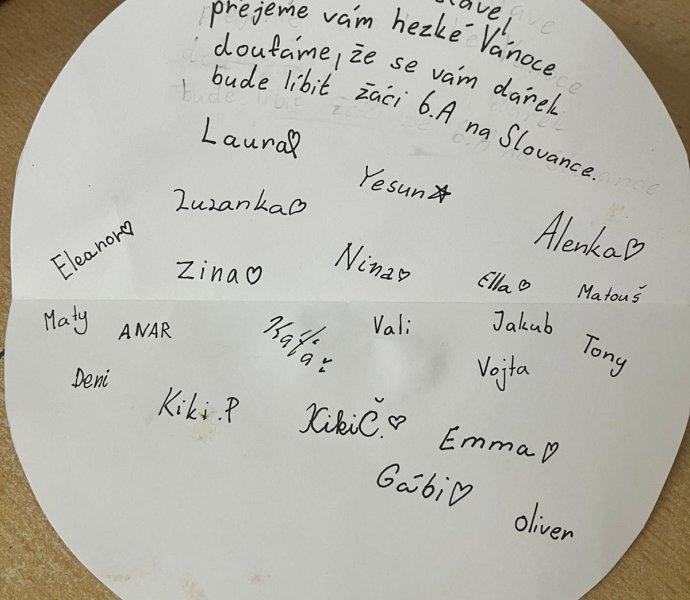 přejeme vám hezké Vánoce
doufáme, že se vám dárek
bude líbit žáci 6.A na Slovance.
Laura♡
Yesun☆
Zuzanka♡
Alenka♡
Eleanor♡
Zina♡
Nina♡
Ella♡
Matouš
Maty
ANAR
Vali
Jakub
Tony
Vojta
Deni
Kiki.P
KikiČ.♡
Emma♡
Gábi♡
Oliver